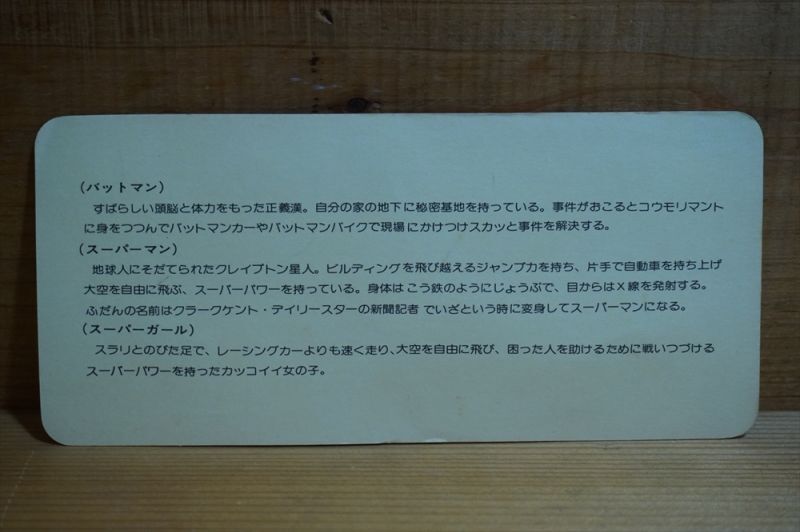 (バットマン)
すばらしい頭脳と体力をもった正義漢。自分の家の地下に秘密基地を持っている。事件がおこるとコウモリマント
に身をつつんでバットマンカーやバットマンバイクで現場にかけつけスカッと事件を解決する。
(スーパーマン)
地球人にそだてられたクレイプトン星人。ビルディングを飛び越えるジャンプ力を持ち、片手で自動車を持ち上げ
大空を自由に飛ぶ、スーパーパワーを持っている。身体はこう鉄のようにじょうぶで、目からはX線を発射する。
ふだんの名前はクラークケント・デイリースターの新聞記者でいざという時に変身してスーパーマンになる。
(スーパーガール)
スラリとのびた足で、レーシングカーよりも速く走り、大空を自由に飛び、困った人を助けるために戦いつづける
スーパーパワーを持ったカッコイイ女の子。